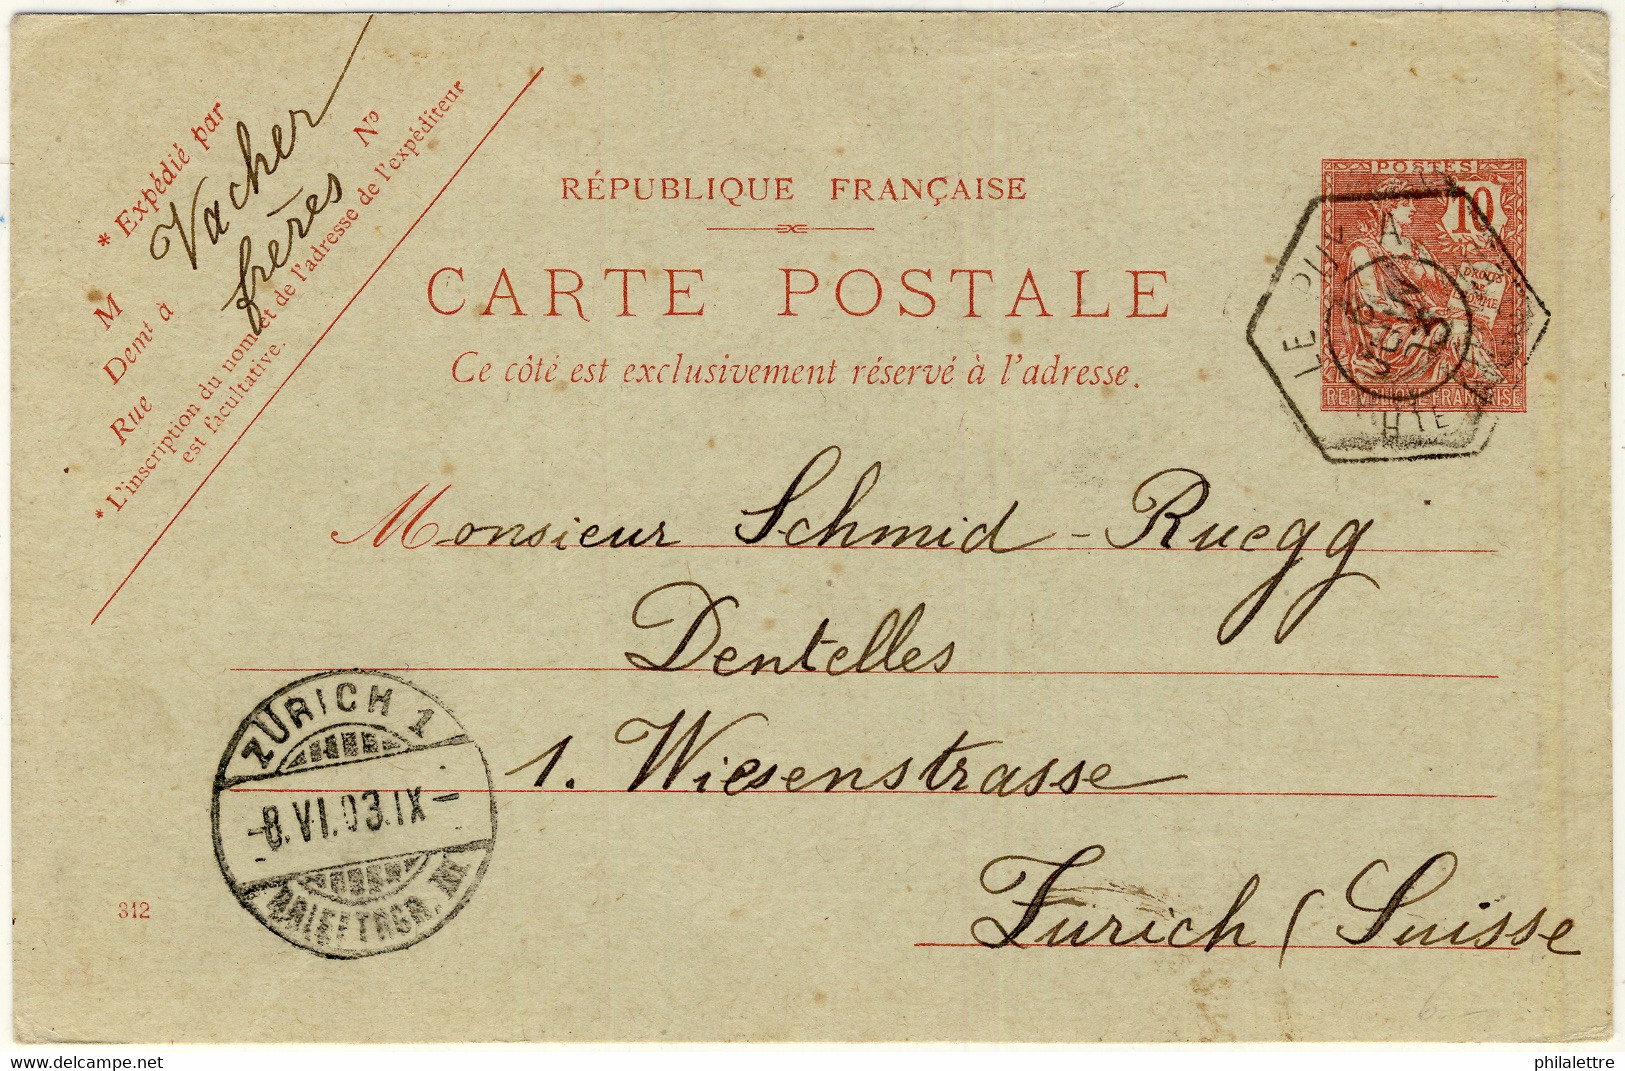 * Expédié par
Vacher
frères
M
Demt à
Rue
No
* L'inscription du nom et de l'adresse de l'expéditeur
est facultative.
RÉPUBLIQUE FRANÇAISE
CARTE POSTALE
Ce côté est exclusivement réservé à l'adresse.
POSTES
10
DROITS
DE
HOMME
RÉPUBLIQUE FRANÇAISE
LE PUY A
JUIN
03
HTE
Monsieur Schmid-Ruegg
Dentelles
1. Wiesenstrasse
Zurich (Suisse
ZÜRICH 1
-8.VI.03.IX-
BRIEFTRGR.
312
6.-
philalettre